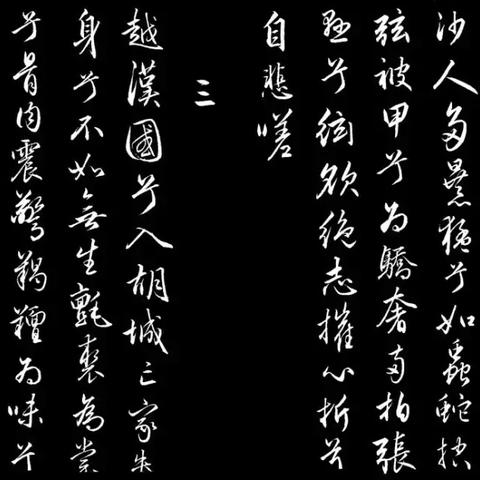 沙人多暴猛兮如蟲蛇控
弦被甲兮為驕奢兩拍張
懸兮絃欲絕志摧心折兮
自悲嗟
三
越漢國兮入胡城亡家失
身兮不如無生氈裘為裳
兮骨肉震驚羯羶為味兮